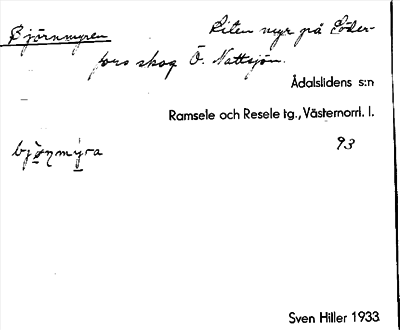 Björnmyren
Liten myr på Söder-
fors skog Ö. Nattsjön.
Ådalslidens s:n
Ramsele och Resele tg., Västernorrl. l.
93
bjo̤ṉmy̱ra
Sven Hiller 1933